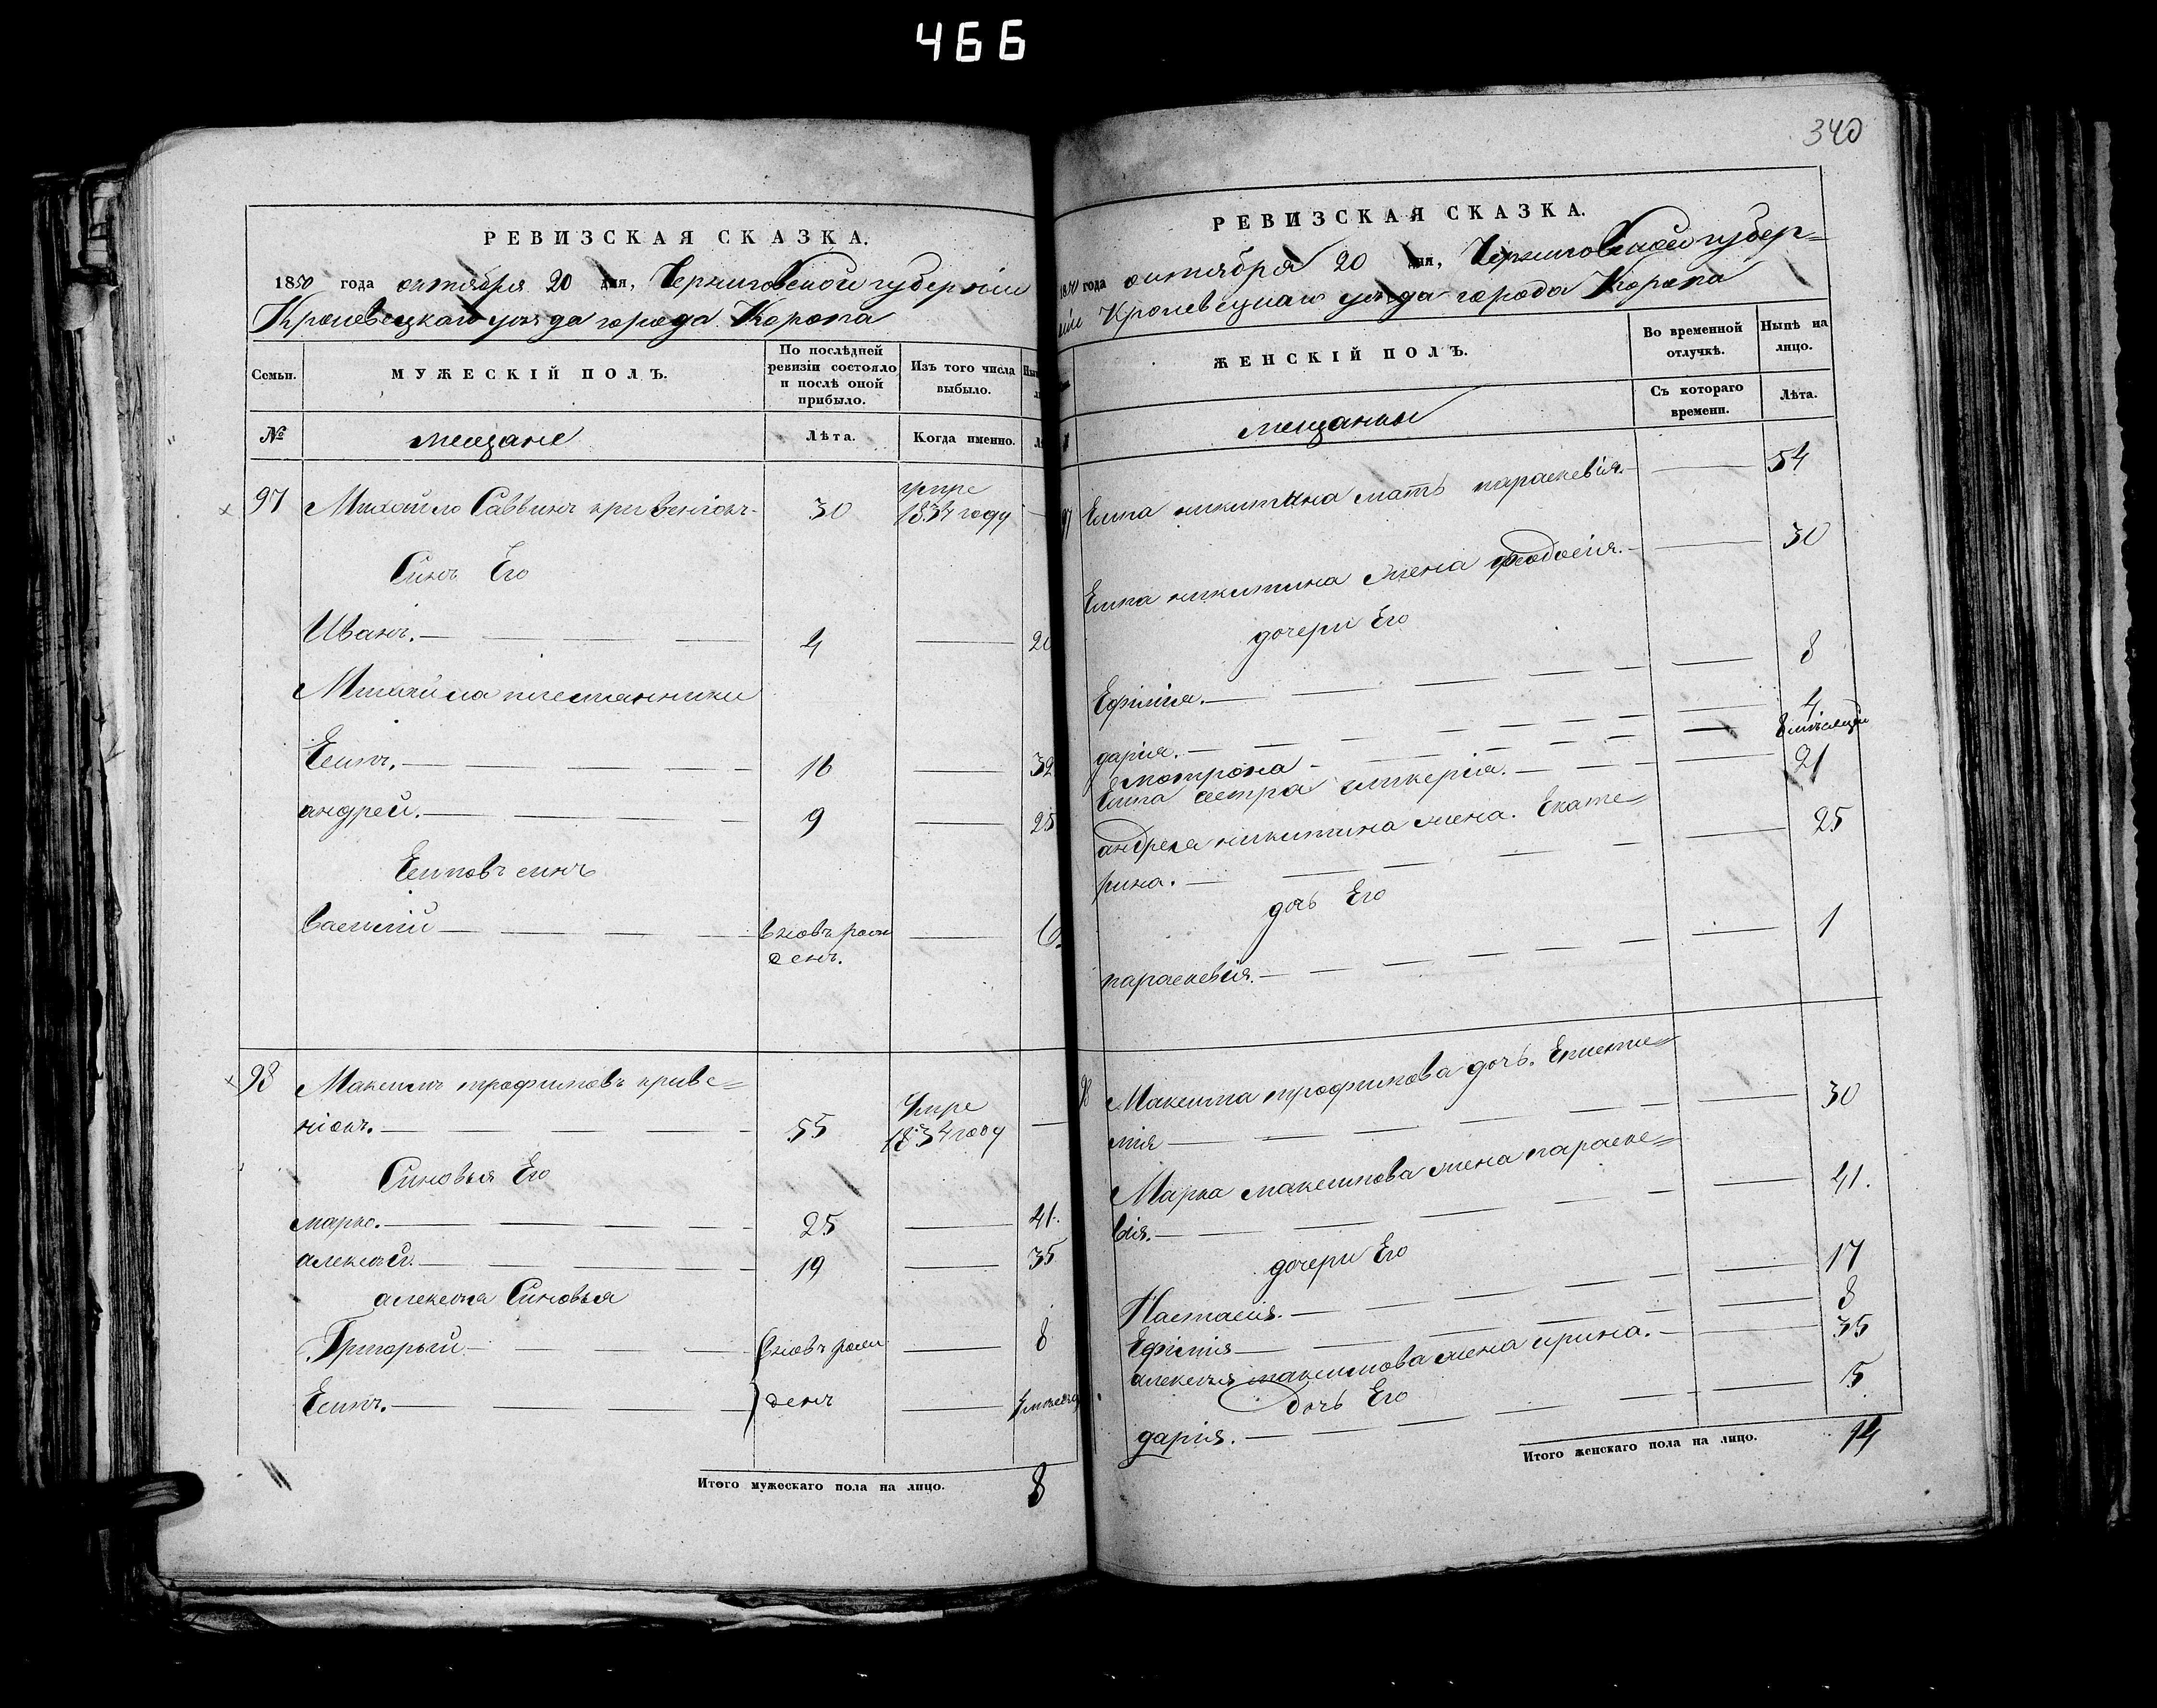 466
340
РЕВИЗСКАЯ СКАЗКА.
1850 года октября 20 дня, Черниговской губерніи
Кролевецкаго уѣзда города Коропа
Семьи.
МУЖЕСКІЙ ПОЛЪ.
По послѣдней ревизіи состояло и послѣ оной прибыло.
Изъ того числа выбыло.
№
мещане
Лѣта.
Когда именно.
97 Михайло Саввинъ кривенюкъ 30 умре 1834 году
Синъ Его
Иванъ. 4 20
Михайла племянники
Есипъ. 16 32
андрей. 9 25
Есиповъ синъ
Василій вновь рожденъ. 6.
98 Максимъ трофимовъ криве=
нюкъ. 55 Умре 1834 году
Синовья Его
марко. 25 41.
алексѣй. 19 35
алексѣя Синовья
Григорый вновь рож 8
Есипъ. денъ
Итого мужескаго пола на лицо. 8
РЕВИЗСКАЯ СКАЗКА.
1850 года октября 20 дня, Черниговской губер=
ніи Кролевецкаго уѣзда города Коропа
ЖЕНСКІЙ ПОЛЪ.
Во временной отлучкѣ.
Нынѣ на лицо.
мещанки
Съ котораго времени.
Лѣта.
97 Есипа никитина мать параскевія. 54
Есипа никитина жена феодосія. 30
дочери Его
Ефимія. 8
дарія. 4
мотрона 8 мѣсяцъ
Есипа сестра гликерія. 21
андрея никитина жена. Екате=
рина. 25
дочь Его
параскевія. 1
98 Максима трофимова дочь. Еписти=
мія 30
Марка максимова жена параске=
вія. 41.
дочери Его
Настасія. 17
Ефимія 8
алексѣя максимова жена ирина. 35
дочь Его
дарія. 5
Итого женскаго пола на лицо. 14